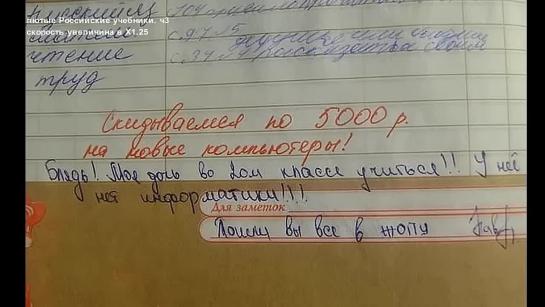 лютые Российские учебники. ч3
скорость увеличина в X1.25
чтение
труд
Скидываемся по 5000 р.
на новые компьютеры!
Блядь! Моя дочь во 2ом классе учиться!!! У неё
нет информатики!!!!
Для заметок
Пошли вы все в жопу